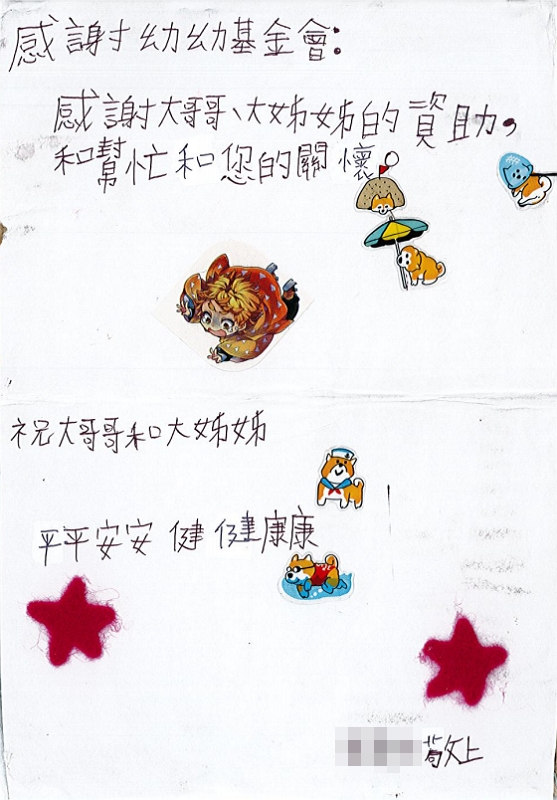 感謝幼幼基金會：
感謝大哥哥、大姊姊的資助，
和幫忙和您的關懷。
祝大哥哥和大姊姊
平平安安 健健康康
敬上